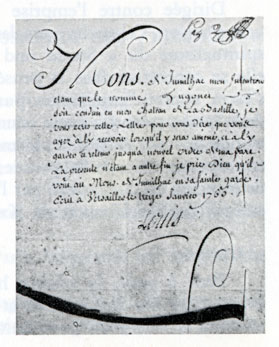 Mons. de Jumilhac mon Intention
etant que le nommé Hugonet
soit conduit en mon Chateau de La Bastille, je
vous ecris cette Lettre pour vous dire que vous
ayez à l'y recevoir lorsqu'il y sera amené, et à l'y
garder et retenir jusqu'à nouvel ordre de ma part.
La presente n'etant à autre fin je prie Dieu qu'il
vous ait Mons. de Jumilhac en sa sainte garde.
Ecrit à Versailles le treize Janvier 1765
Louis